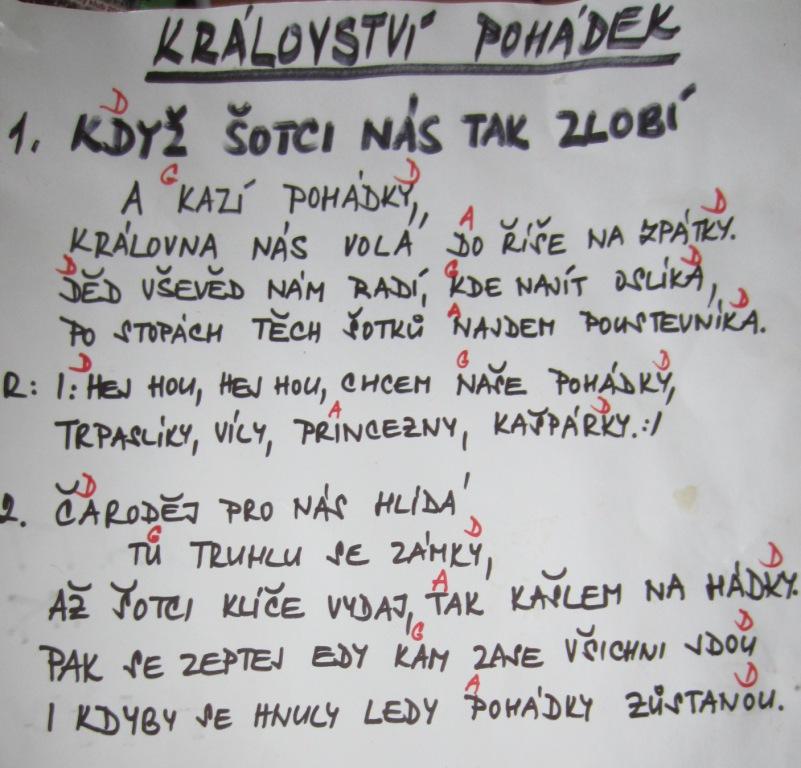 KRÁLOVSTVÍ POHÁDEK
D
1. KDYŽ ŠOTCI NÁS TAK ZLOBÍ
G D
A KAZÍ POHÁDKY,,
A D
KRÁLOVNA NÁS VOLÁ DO ŘÍŠE NA ZPÁTKY.
D G D
DĚD VŠEVĚD NÁM RADÍ, KDE NAJÍT OSLÍKA,
A D
PO STOPÁCH TĚCH ŠOTKŮ NAJDEM POUSTEVNÍKA.
D G D
R: /: HEJ HOU, HEJ HOU, CHCEM NAŠE POHÁDKY,
A D
TRPASLÍKY, VÍLY, PRINCEZNY, KAŠPÁRKY.:/
D
2. ČARODĚJ PRO NÁS HLÍDÁ
G D
TŮ TRUHLU SE ZÁMKY,
A D
AŽ ŠOTCI KLÍČE VYDAJ, TAK KAŠLEM NA HÁDKY.
G D
PAK SE ZEPTEJ EDY KAM ZASE VŠICHNI JDOU
A D
I KDYBY SE HNULY LEDY POHÁDKY ZŮSTANOU.